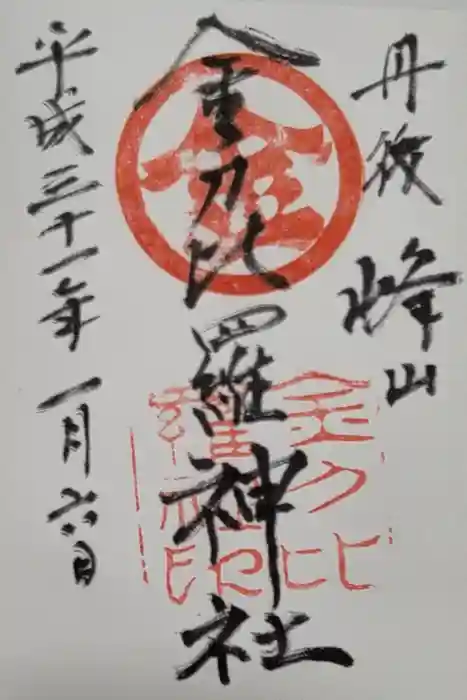 丹後 峰山
金刀比羅神社
平成三十一年一月六日
金
金刀比
羅社印